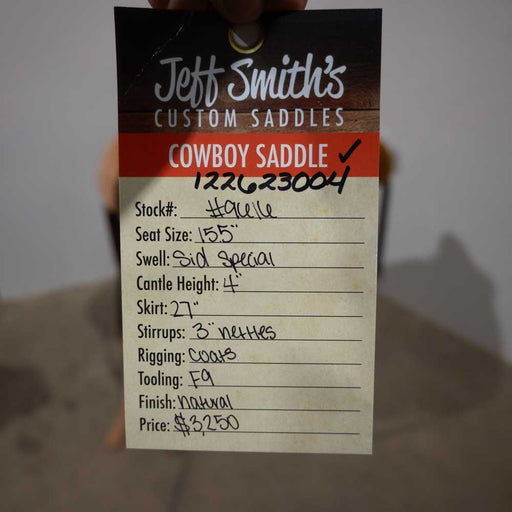 Jeff Smith's
CUSTOM SADDLES
COWBOY SADDLE ✓
122623004
Stock#:
Seat Size: 15.5"
Swell: Sid Special
Cantle Height: 4"
Skirt: 27"
Stirrups: 3" nettles
Rigging: Coats
Tooling: F9
Finish: natural
Price: $3,250